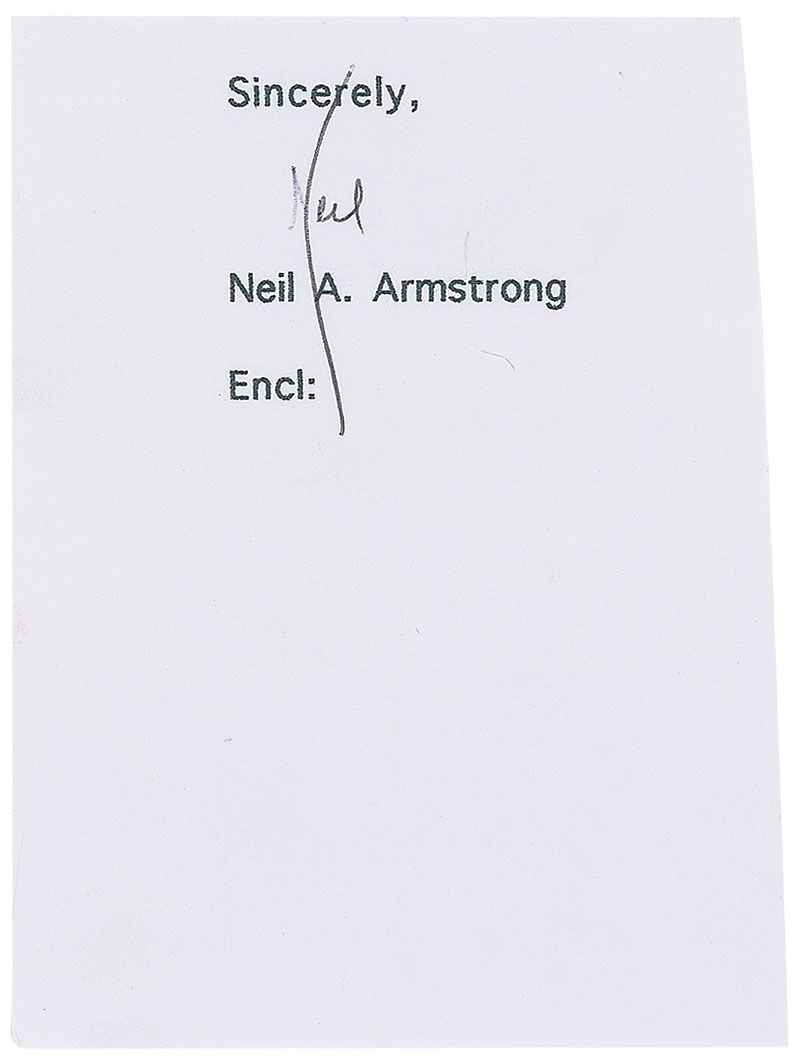 Sincerely,
Neil
Neil A. Armstrong
Encl: